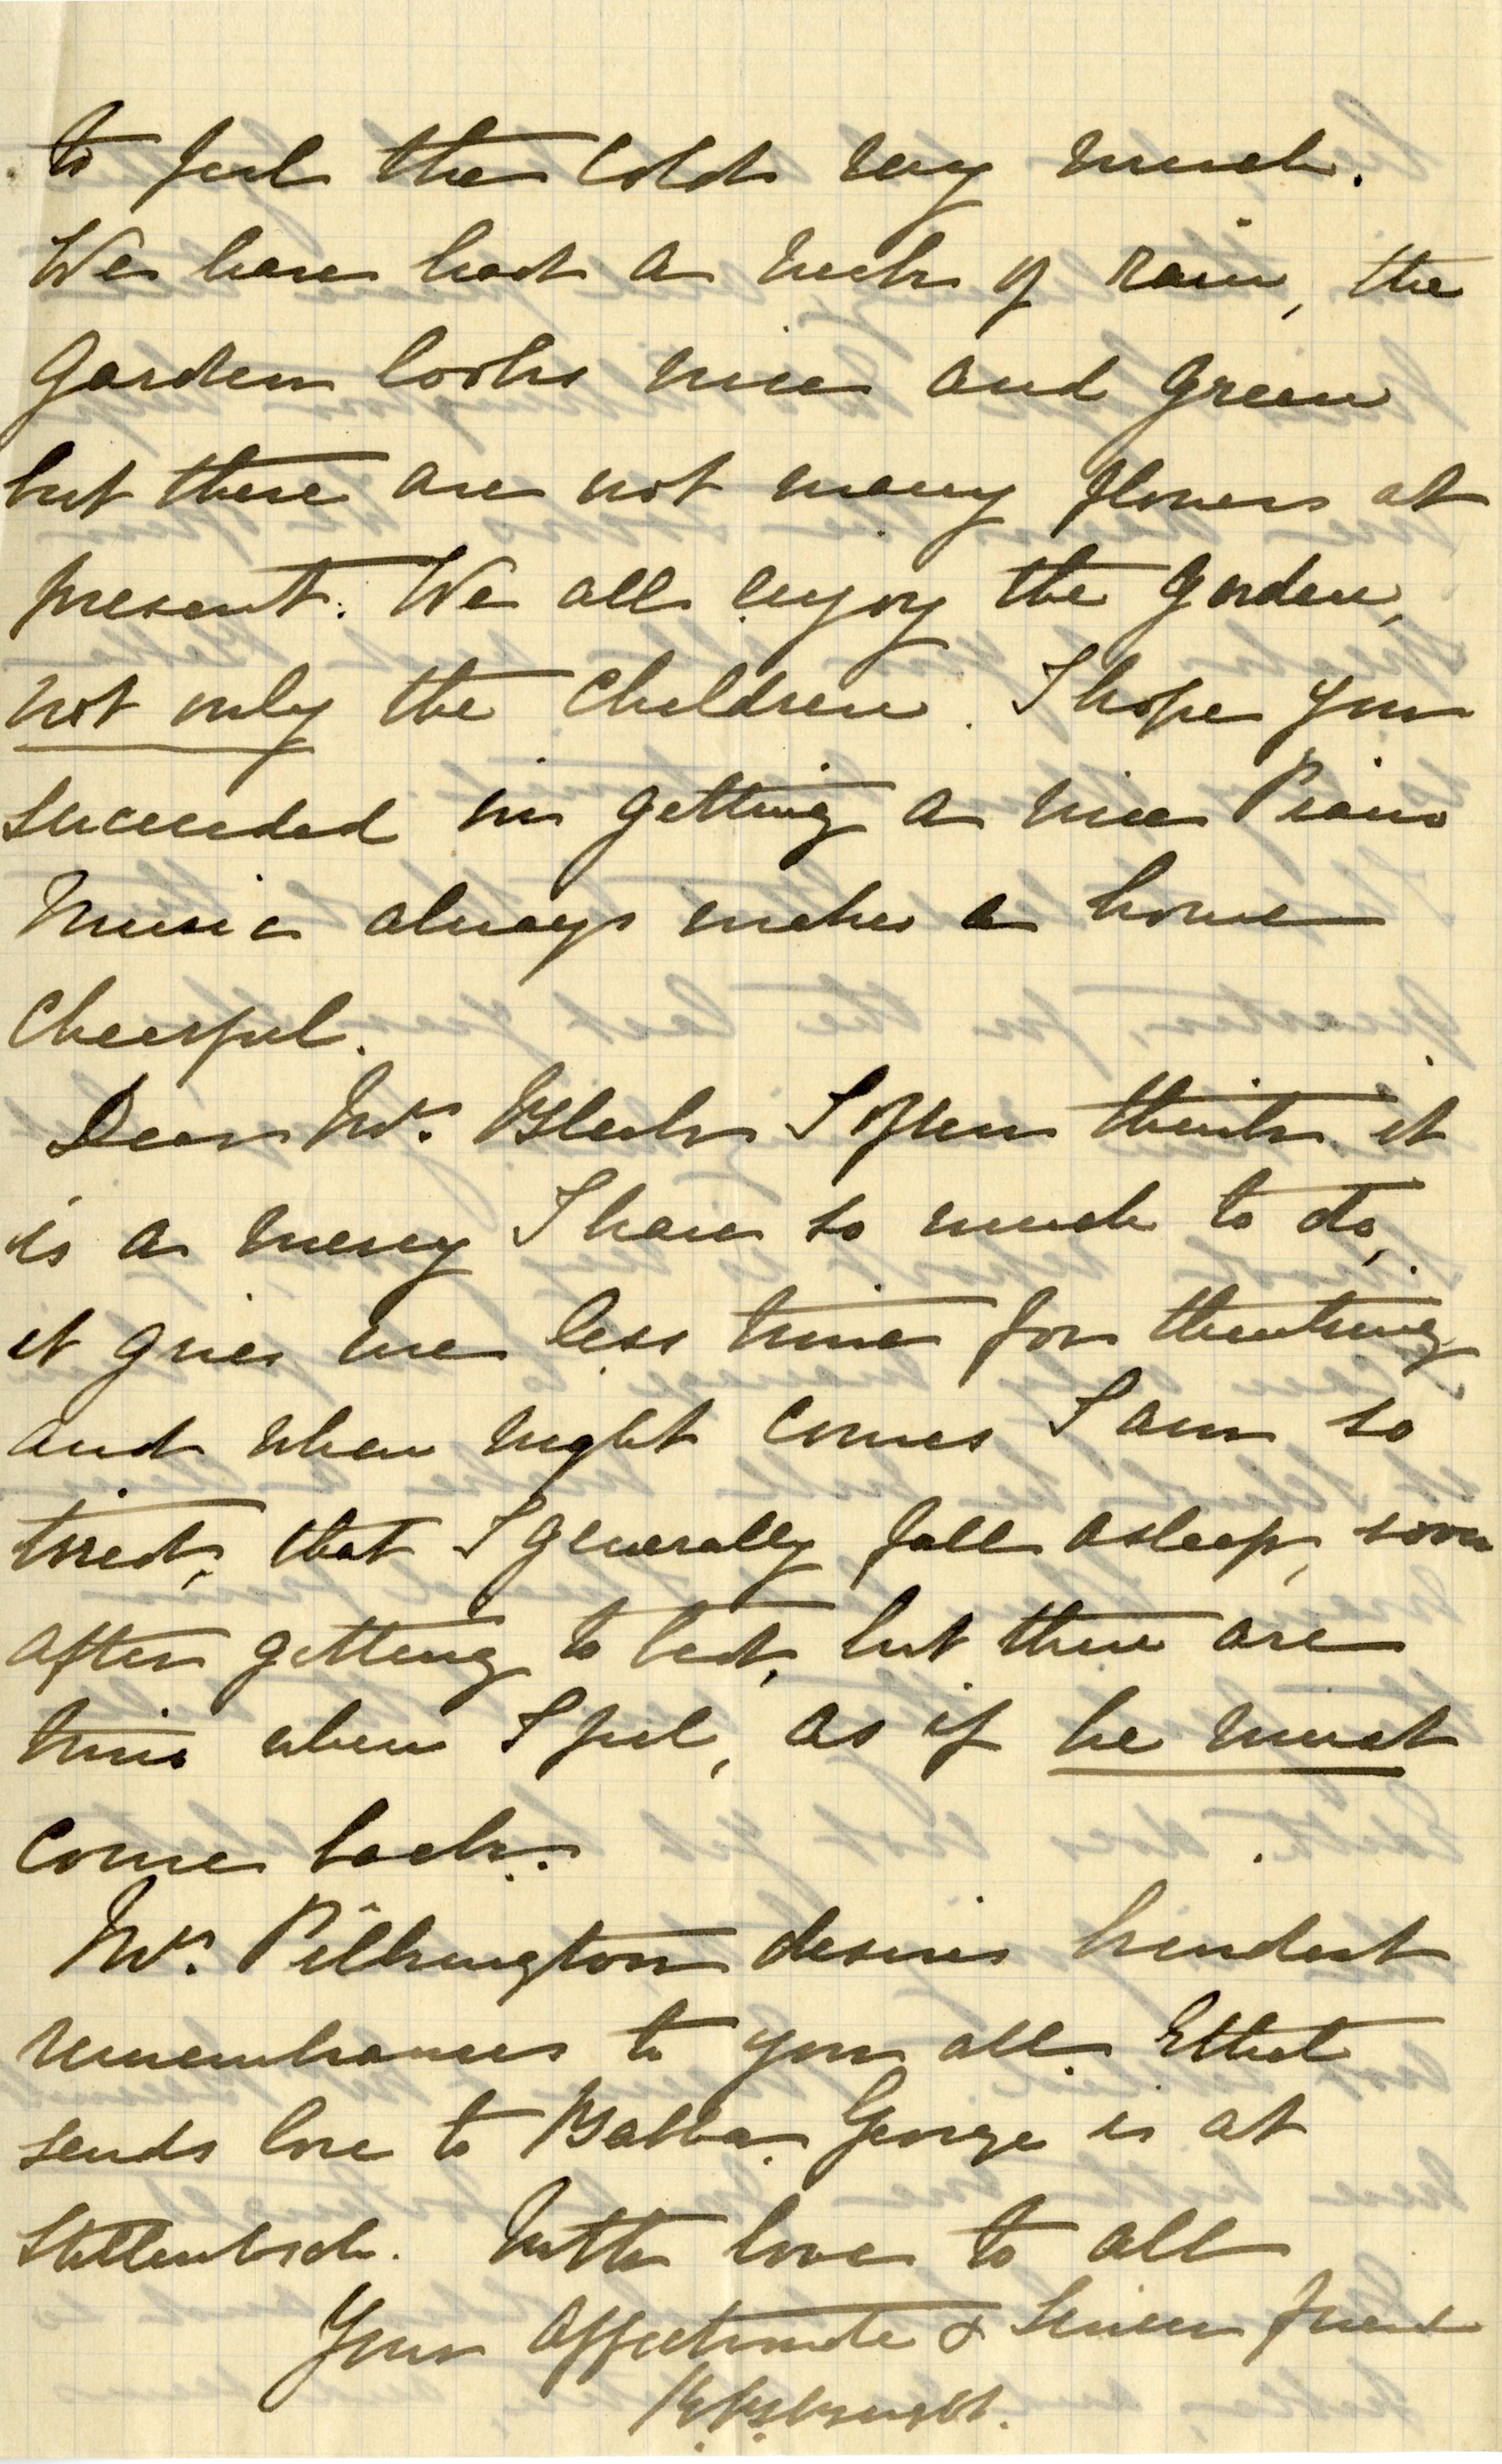 to feel the cold very much.
We have had a week of rain, the
garden looks nice and green
but there are not many flowers at
present. We all enjoy the garden,
not only the children. I hope you
succeeded in getting a nice Piano
Music always makes a home
cheerful.
Dear Mrs. Bleek I often think it
is a mercy I have so much to do,
it gives me less time for thinking
and when night comes I am so
tired, that I generally fall asleep, soon
after getting to bed, but there are
times when I feel, as if he must
come back.
Mrs. Pilkington desires kindest
remembrances to you all. Ethel
sends love to Babba. George is at
Stellenbosch. With love to all
Your affectionate & sincere friend